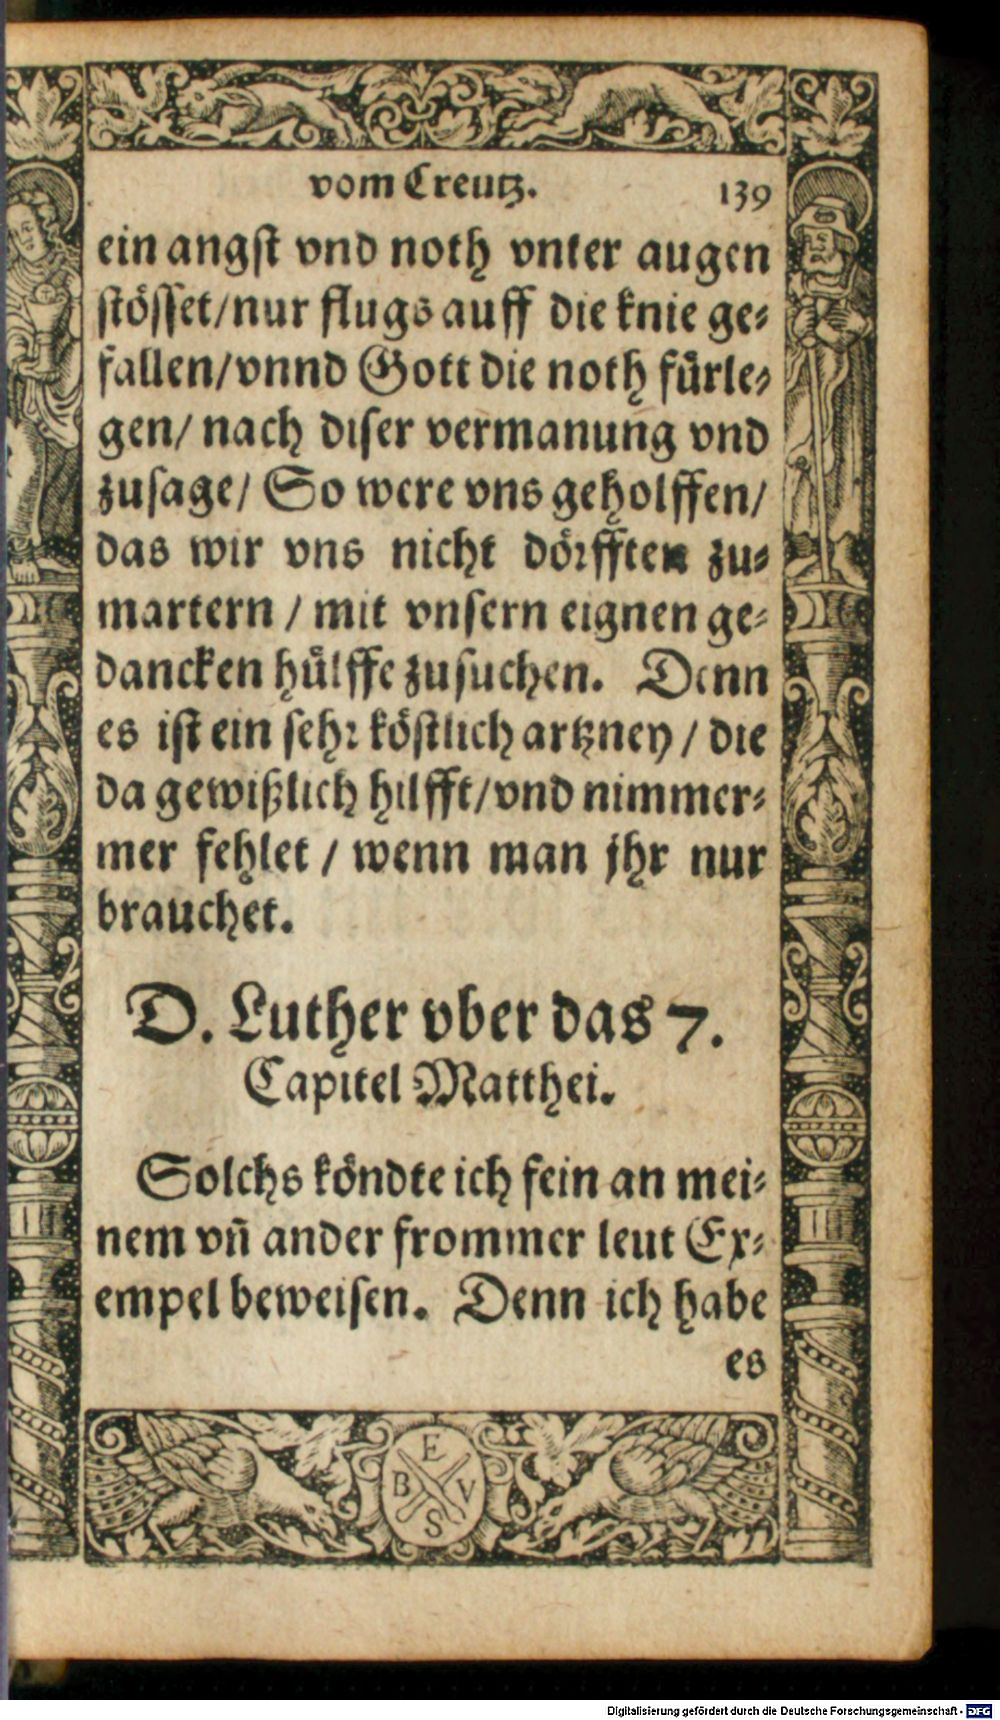 vom Creutz. 139
ein angst vnd noth vnter augen
stösset/nur flugs auff die knie ge⸗
fallen/vnnd Gott die noth fürle⸗
gen/ nach diser vermanung vnd
zusage/ So were vns geholffen/
das wir vns nicht dörfften zu⸗
martern / mit vnsern eignen ge⸗
dancken hülffe zusuchen. Denn
es ist ein sehr köstlich artzney / die
da gewißlich hilfft/vnd nimmer⸗
mer fehlet / wenn man jhr nur
brauchet.
D. Luther vber das 7.
Capitel Matthei.
Solchs köndte ich fein an mei⸗
nem vn̄ ander frommer leut Ex⸗
empel beweisen. Denn ich habe
es
E
B V
S
Digitalisierung gefördert durch die Deutsche Forschungsgemeinschaft - DFG